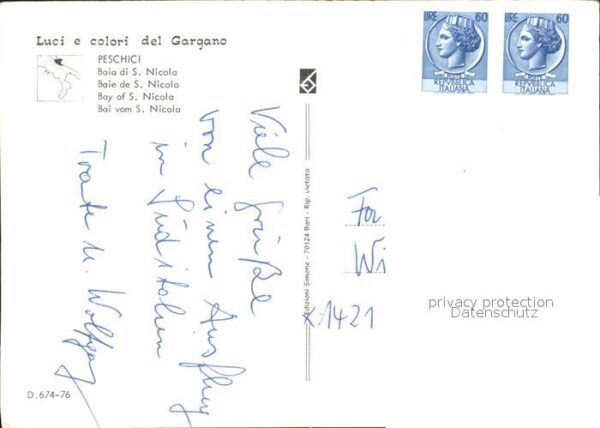 Luci e colori del Gargano
PESCHICI
Baia di S. Nicola
Baie de S. Nicola
Bay of S. Nicola
Bai vom S. Nicola
Viele Grüße
von einem Ausflug
in Süditalien
Traute u. Wolfgang
Edizioni Simone - 70124 Bari - Rip. vietata
D. 674-76
LIRE 60
POSTE
REPVBBLICA
ITALIANA
LIRE 60
POSTE
REPVBBLICA
ITALIANA
For
Wi
x1421
privacy protection
Datenschutz